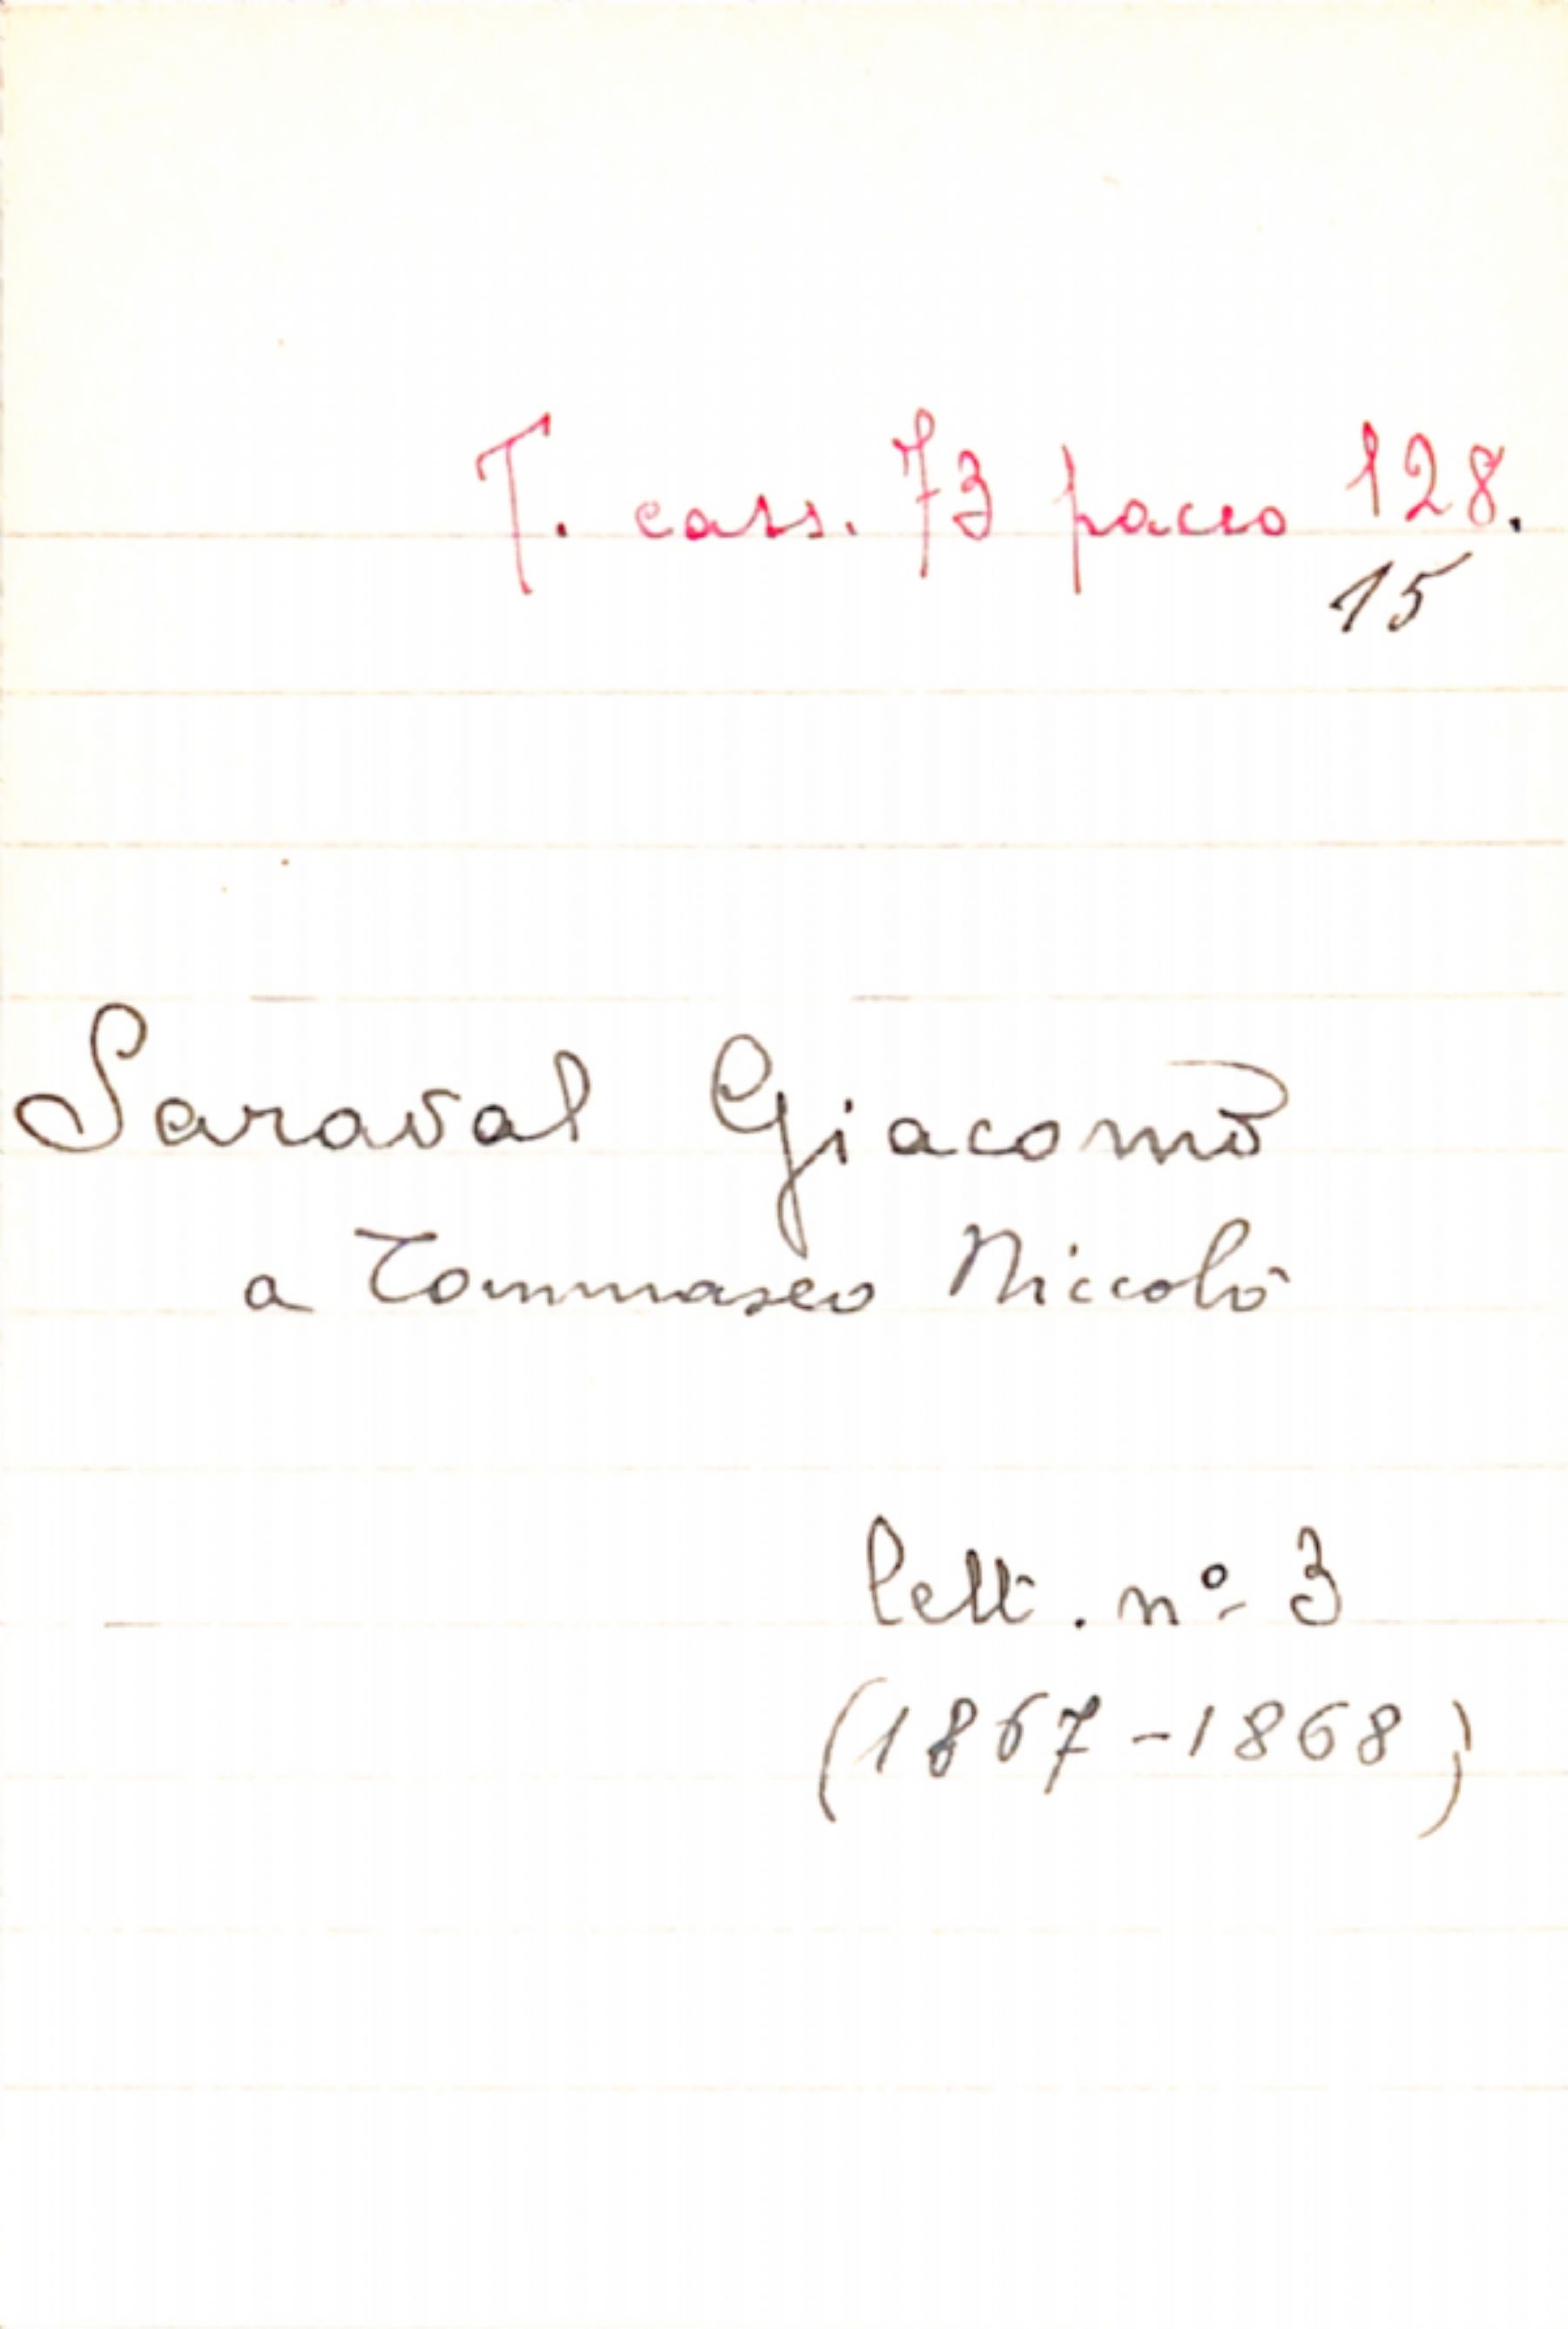 T. cass. 73 pacco 128.
15
Saraval Giacomo
a Tommaseo Niccolò
lett. nº 3
(1867-1868)